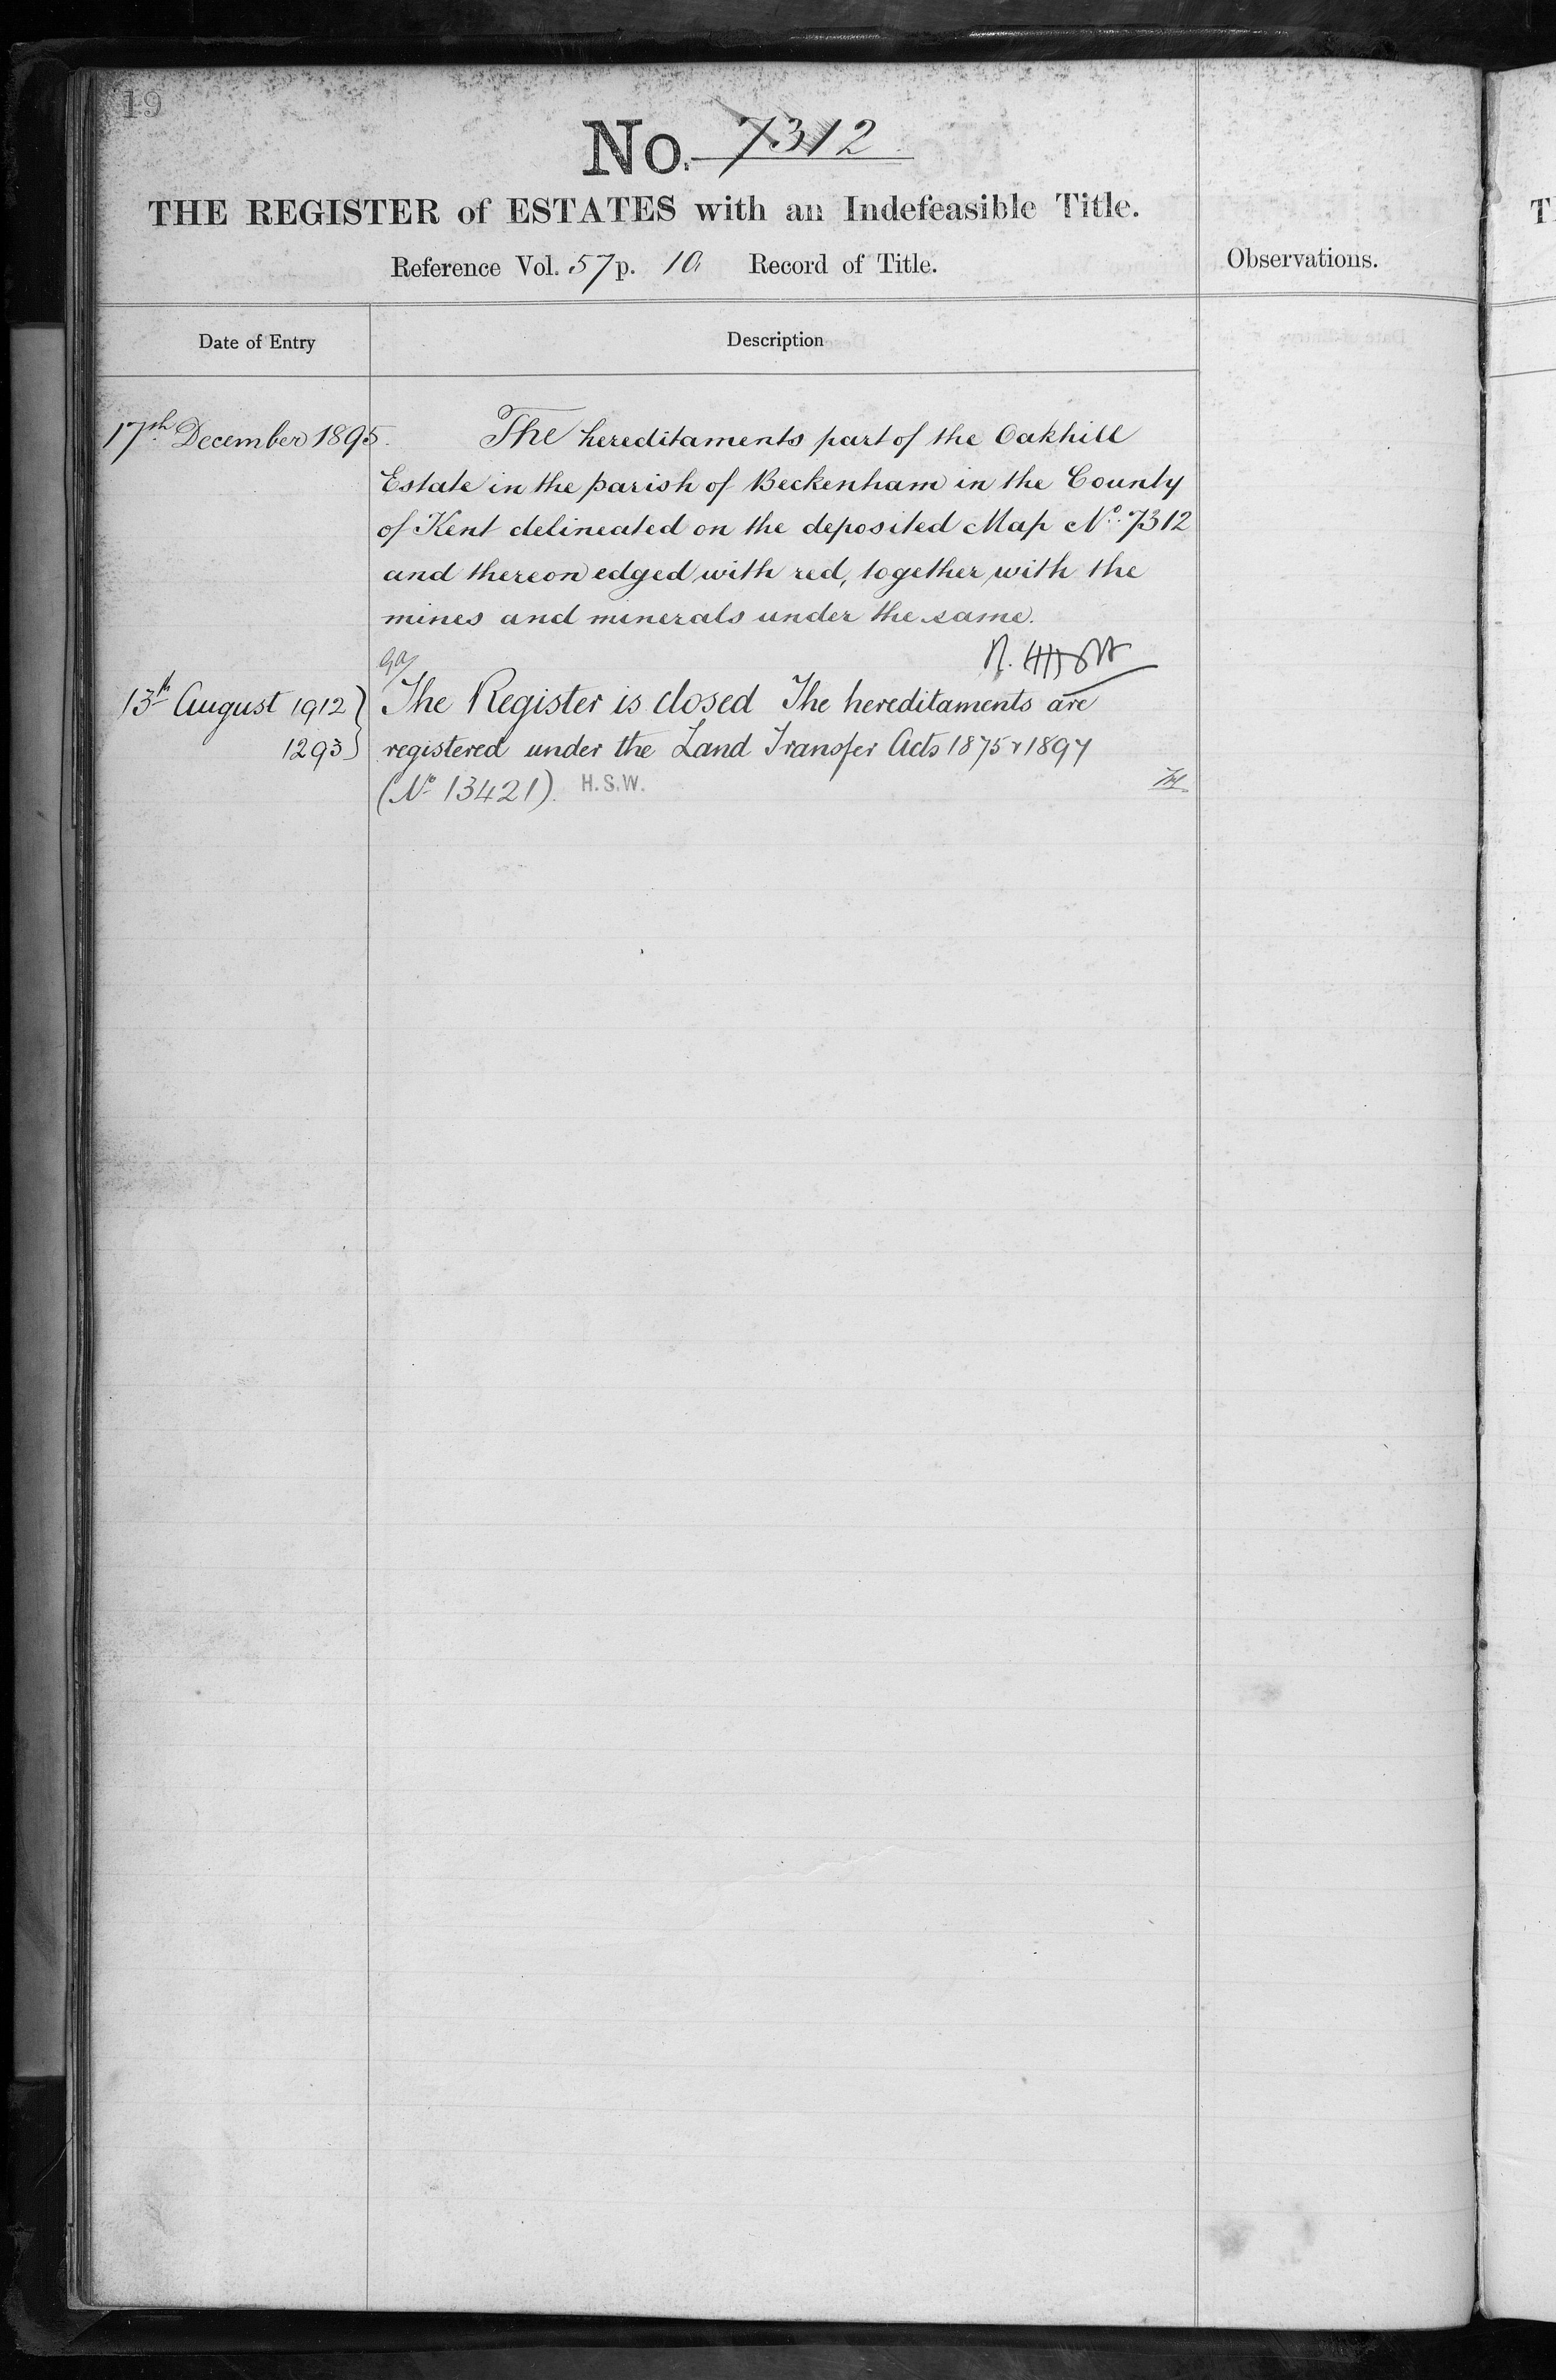 19
No. 7312
THE REGISTER of ESTATES with an Indefeasible Title.
Reference Vol. 57 p. 10 Record of Title.
Observations.
Date of Entry
Description
17th December 1895.
The hereditaments part of the Oakhill
Estate in the parish of Beckenham in the County
of Kent delineated on the deposited Map No. 7312
and thereon edged with red, together with the
mines and minerals under the same.
13th August 1912
1293
The Register is closed The hereditaments are
registered under the Land Transfer Acts 1875 & 1897
(No 13421). H.S.W.